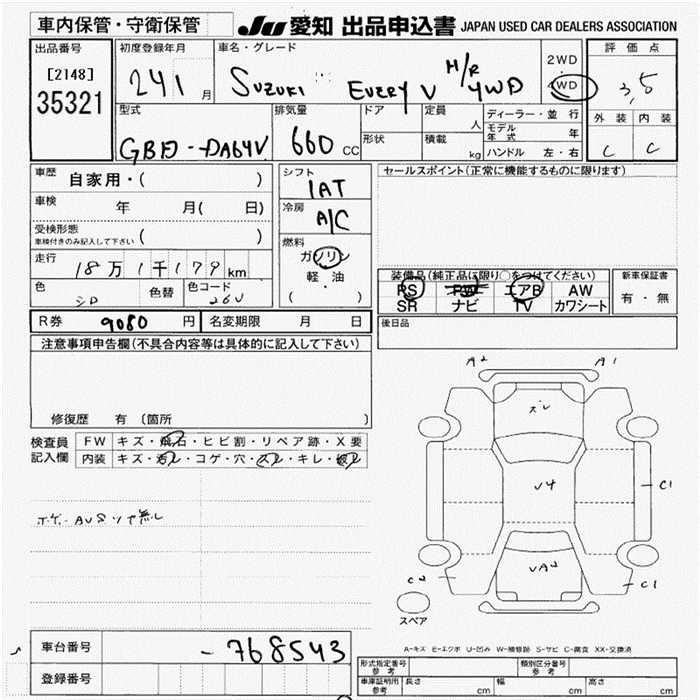 車内保管・守衛保管
JU 愛知 出品申込書 JAPAN USED CAR DEALERS ASSOCIATION
出品番号 初度登録年月 車名・グレード 2WD 評価点
[2148] 24 1 月 SUZUKI EVERY V H/R 4WD 4WD 3,5
35321
型式 排気量 ドア 定員 人 ディーラー・並行 外装 内装
モデル年式 年
GBD-DA64V 660 CC 形状 積載 kg ハンドル 左・右 C C
車歴 自家用・( ) シフト 1AT セールスポイント(正常に機能するものに限ります)
車検 年 月( 日) 冷房 A/C
受検形態
車検付きのみ記入して下さい ( ) 燃料
走行 18万1千179km ガソリン 装備品(純正品に限り○をつけてください) 新車保証書
軽・油 PS PW エアB AW 有・無
色 色替 色コード 26U ( ) SR ナビ TV カワシート
R券 9080 円 名変期限 月 日 後日品
注意事項申告欄(不具合内容等は具体的に記入して下さい)
修復歴 有 (箇所 )
検査員 FW キズ・飛石・ヒビ割・リペア跡・X要
記入欄 内装 キズ・汚レ・コゲ・穴・スレ・キレ・破レ
A2 A1
スレ
U4 C1
UA2
C2 C1
スペア
A-キズ E-エクボ U-凹み W-補修跡 S-サビ C-腐食 XX-交換済
車台番号 -768543
登録番号
形式指定番号 参考 類別区分番号 参考
車庫証明用 参考 長さ cm 幅 cm 高さ cm